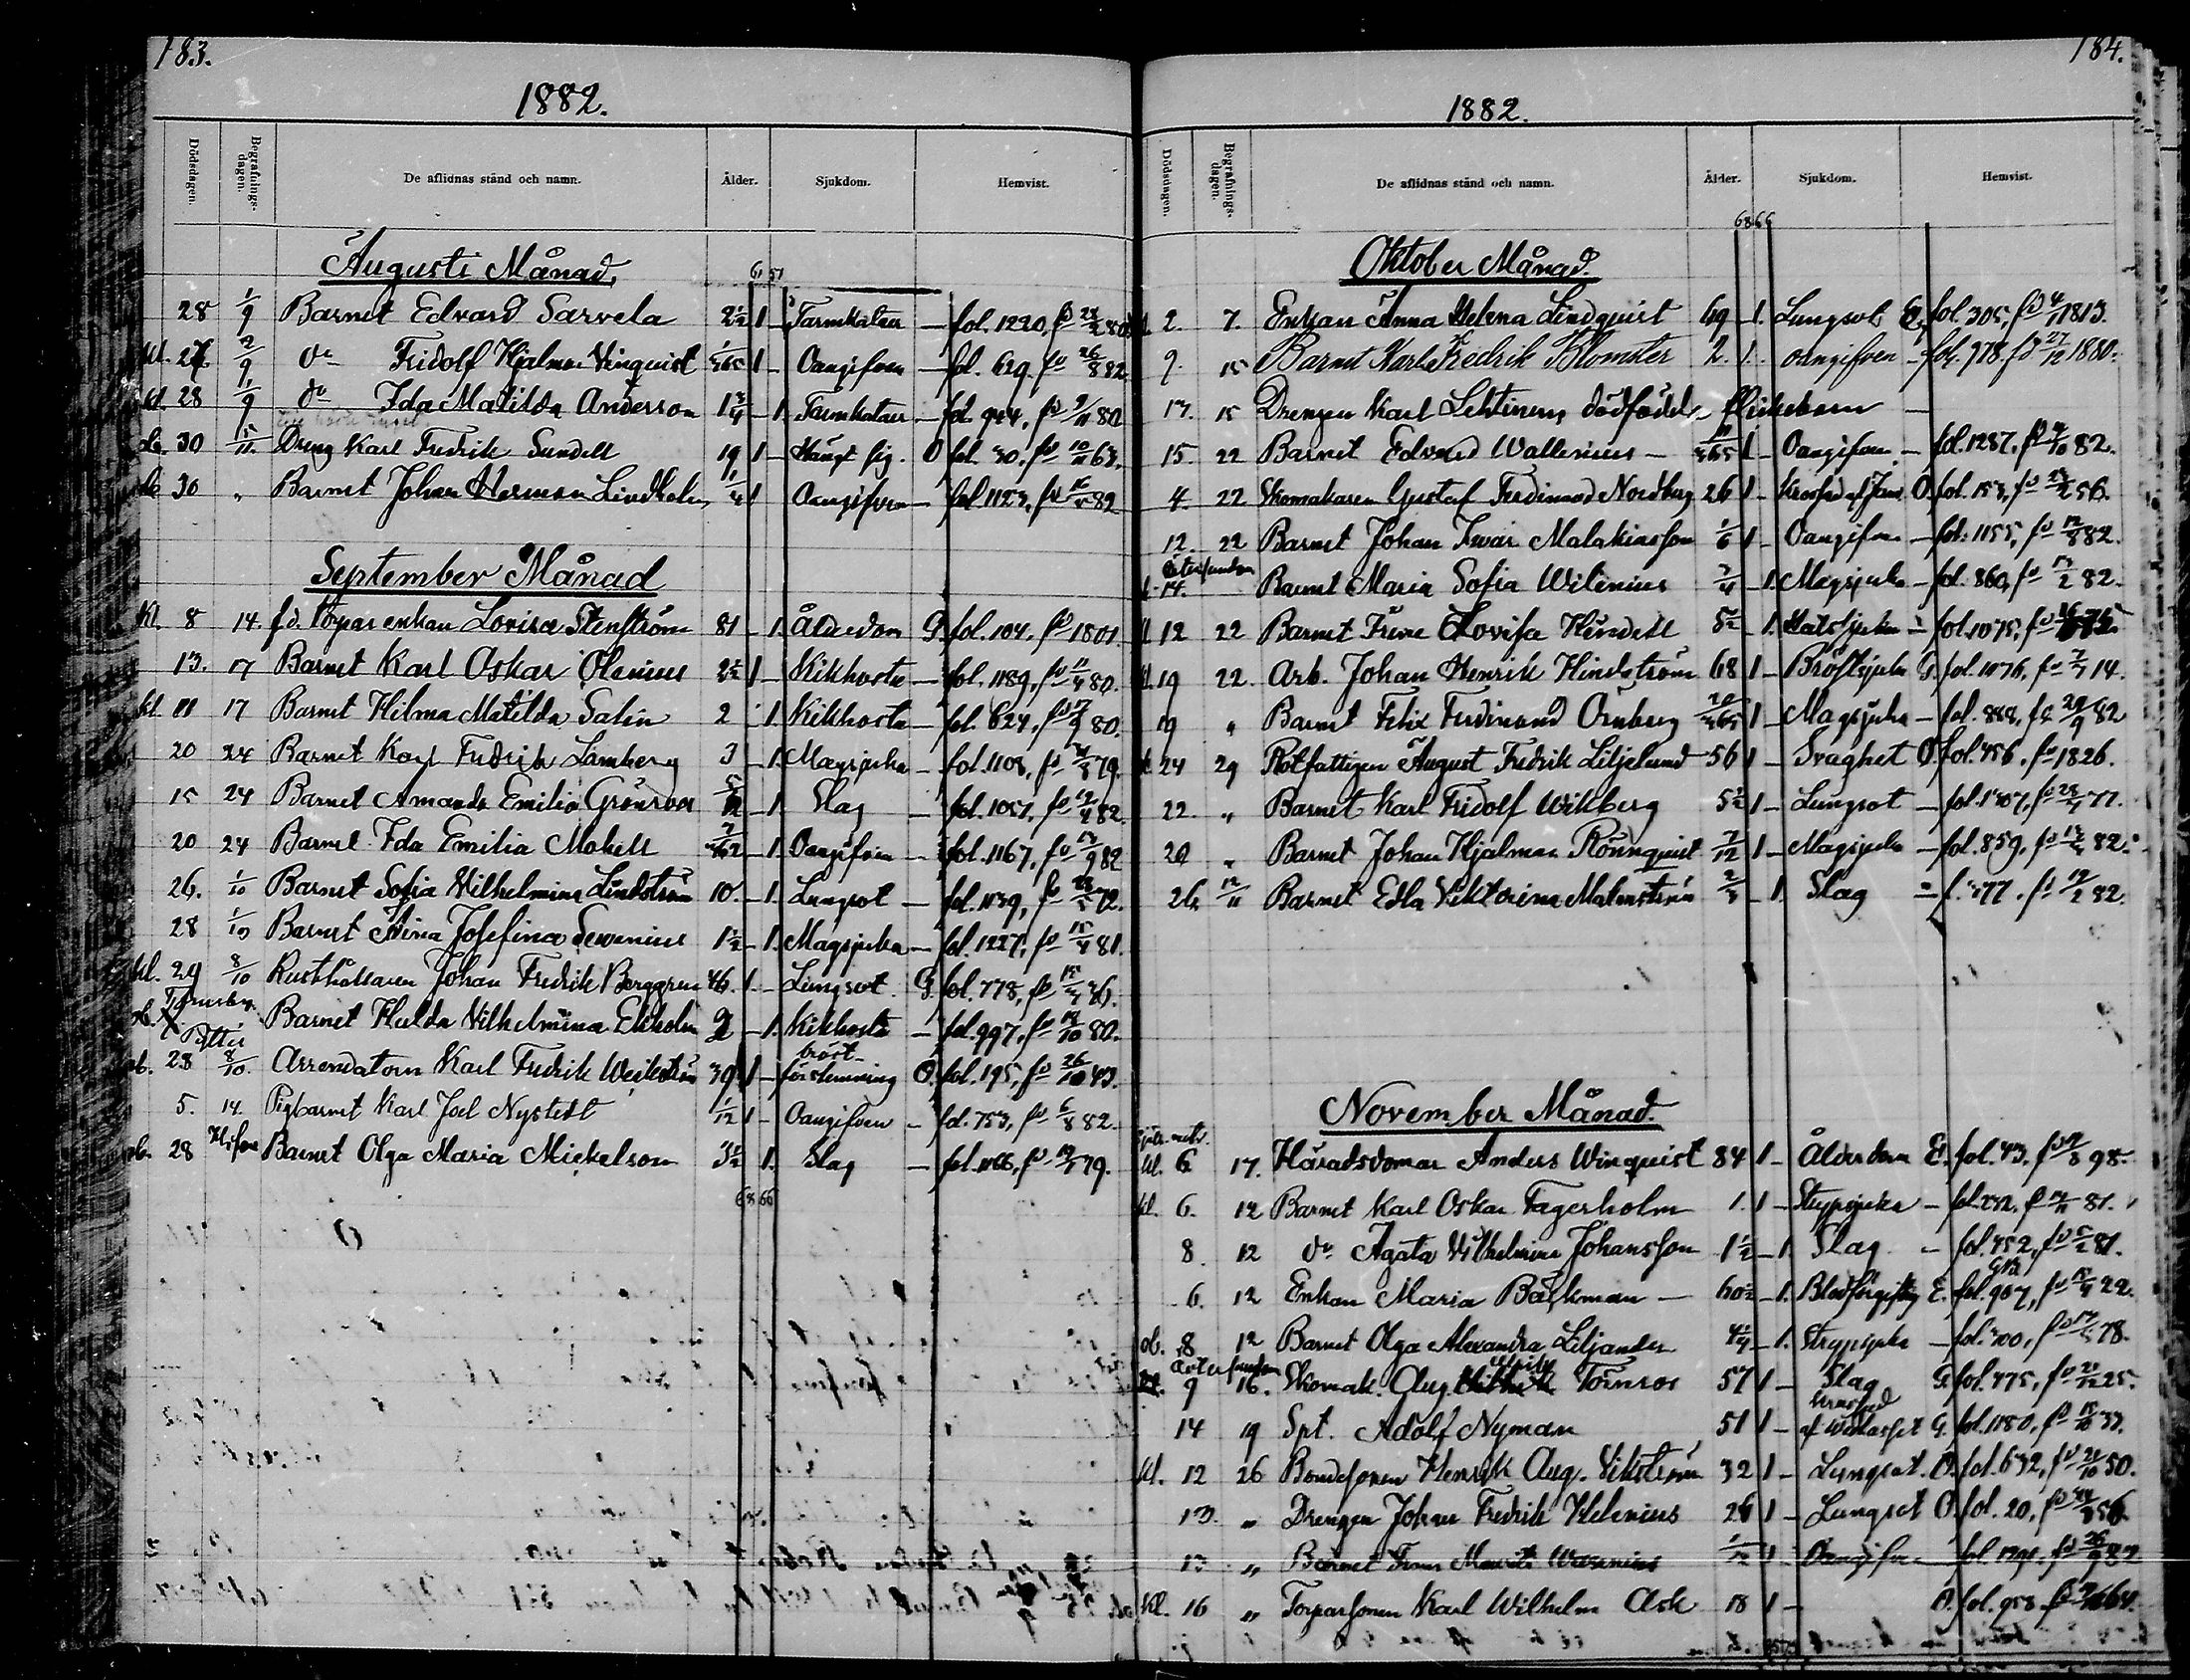 183.
1882.
Dödsdagen. Begrafnings-dagen. De aflidnas stånd och namn. Ålder. Sjukdom. Hemvist.
Augusti Månad.
61 51
28 1/9 Barnet Edvard Sarvela 2 1/2 1 – Tarmkatarr – fol. 1220, fd
kl. 27 2/9 do Fridolf Hjalmar Winquist 1 – Oangifven – fol. 629. fd 26/8 82
kl. 28 1/9 do Ida Matilda Anderson 1 3/4 – 1. Tarmkatarr – fol. 944, fd 9/11 80
30 Dreng Karl Fredrik Sundell 19 1 – O fol. 30. fd 10/11 63.
30 „ Barnet Johan Herman Lindholm 1/4 1 Oangifven – fol. 1123, fd 82
September Månad
kl. 8 14. fd. Torparenkan Lovisa Stenström 81 – 1. Ålderdom G. fol. 104. fd 1801
13. 17 Barnet Karl Oskar Olenius 2 1/2 1 – Kikhosta – fol. 1189, fd 80.
kl. 11 17 Barnet Hilma Matilda Salin 2 – 1. Kikhosta – fol. 624, fd 80.
20 24 Barnet Karl Fredrik Lamberg 3 – 1. Magsjuka – fol. 1108, fd 79.
15 24 Barnet Amanda Emilia Grönroos 5/12 – 1. Slag – fol. 1057, fd 82.
20 24 Barnet Ida Emilia Mokell – 1. Oangifven – fol. 1167, fd 13/9 82
26. 1/10 Barnet Sofia Vilhelmina Lindström 10. – 1. Lungsot – fol. 1139, fd 72.
28 1/10 Barnet Aina Josefina Sevenius 1 1/2 – 1. Magsjuka – fol. 1227, fd 81.
kl. 29 8/10 Rusthållaren Johan Fredrik Berggren 46. 1. – Lungsot. G. fol. 778, fd 36.
Barnet Hulda Vilhelmina Ekholm 2 – 1. Kikhosta – fol. 997, fd 19/10 80.
28 8/10. Arrendatorn Karl Fredrik Weckström 39 1 – bröst-förslemning O. fol. 195, fd 26/10 43.
5. 14. Pigbarnet Karl Joel Nystedt 1/12 1 – Oangifven – fol. 753, fd 6/8 82.
28 Barnet Olga Maria Mickelson 3 1/2 1. Slag – fol. 1166, fd 79.
68 66
184.
1882.
Dödsdagen. Begrafnings-dagen. De aflidnas stånd och namn. Ålder. Sjukdom. Hemvist.
68 66
Oktober Månad.
2. 7. Enkan Anna Helena Lindquist 69 – 1. Lungsot E. fol. 305, fd 4/11 1813.
9. 15 Barnet Karl Fredrik Blomster 2. 1. oangifven – fol. 978 fd 27/12 1880.
13. 15 Drengen Karl Lehtinens dödfödda flickebarn –
15. 22 Barnet Edvard Wallenius – 11/365 1 – Oangifven – fol. 1287, fd 4/10 82.
4. 22 Skomakaren Gustaf Ferdinand Nordberg 26 1 – O. fol. 153, fd 56.
12. 22 Barnet Johan Ivar Malakiasson 1/6 1 – Oangifven – fol. 1155, fd 12/8 82.
Östersundom
14. Barnet Maria Sofia Witenius 3/4 – 1. Magsjuka – fol. 860, fd 13/2 82.
12 22 Barnet Irene Lovisa Hindell – 1. Halssjuka – fol. 1075, fd
kl. 19 22. Arb. Johan Henrik Hindström 68 1 – Bröstsjuka G. fol. 1076, fd 14.
19 „ Barnet Felix Ferdinand Örnberg 20/365 1 – Magsjuka – fol. 888, fd 29/9 82
24 29 Rotfattigen August Fredrik Liljelund 56 1 – Svaghet O. fol. 456. fd 1826.
22. „ Barnet Karl Fridolf Wikberg 5 1/2 1 – Lungsot – fol. fd 77.
20 „ Barnet Johan Hjalmar Rönnquist 7/12 1 – Magsjuka – fol. 859, fd 82.
26. 12/11 Barnet Edla Viktorina Malmström – 1. Slag – f. 377. fd 19/2 82.
November Månad.
kl. 6 17. Häradsdomar Anders Winquist 84 1 – Ålderdom E. fol. 43. fd 98.
kl. 6. 12 Barnet Karl Oskar Fagerholm 1. 1 – Strypsjuka – fol. 272, fd 81.
8 12 do Agata Vilhelmina Johansson 1 1/2 – 1. Slag – fol. 452, fd 81.
6. 12 Enkan Maria Bäckman – 60 1/2 – 1. Blodförgiftng E. fol. 907, fd 22.
8 12 Barnet Olga Alexandra Liljander 4 1/4 – 1. Strypsjuka – fol. 300, fd 78.
Östersundom
9 16. Skomak. Aug. Törnroos 57 1 – Slag G. fol. 475, fd 25.
14 19 Spt. Adolf Nyman 51 1 – G. fol. 1180, fd 33.
kl. 12 26 Bondesonen Henrik Aug. Vikström 32 1 – Lungsot. O. fol. 632, fd 21/10 50.
13. „ Drengen Johan Fredrik Helenius 26 1 – Lungsot O. fol. 20, fd 56.
13 „ Barnet 1 – Oangifven fol. fd 82
kl. 16 „ Torparsonen Karl Wilhelm Ask 18 1 – O. fol. 958 fd 64.